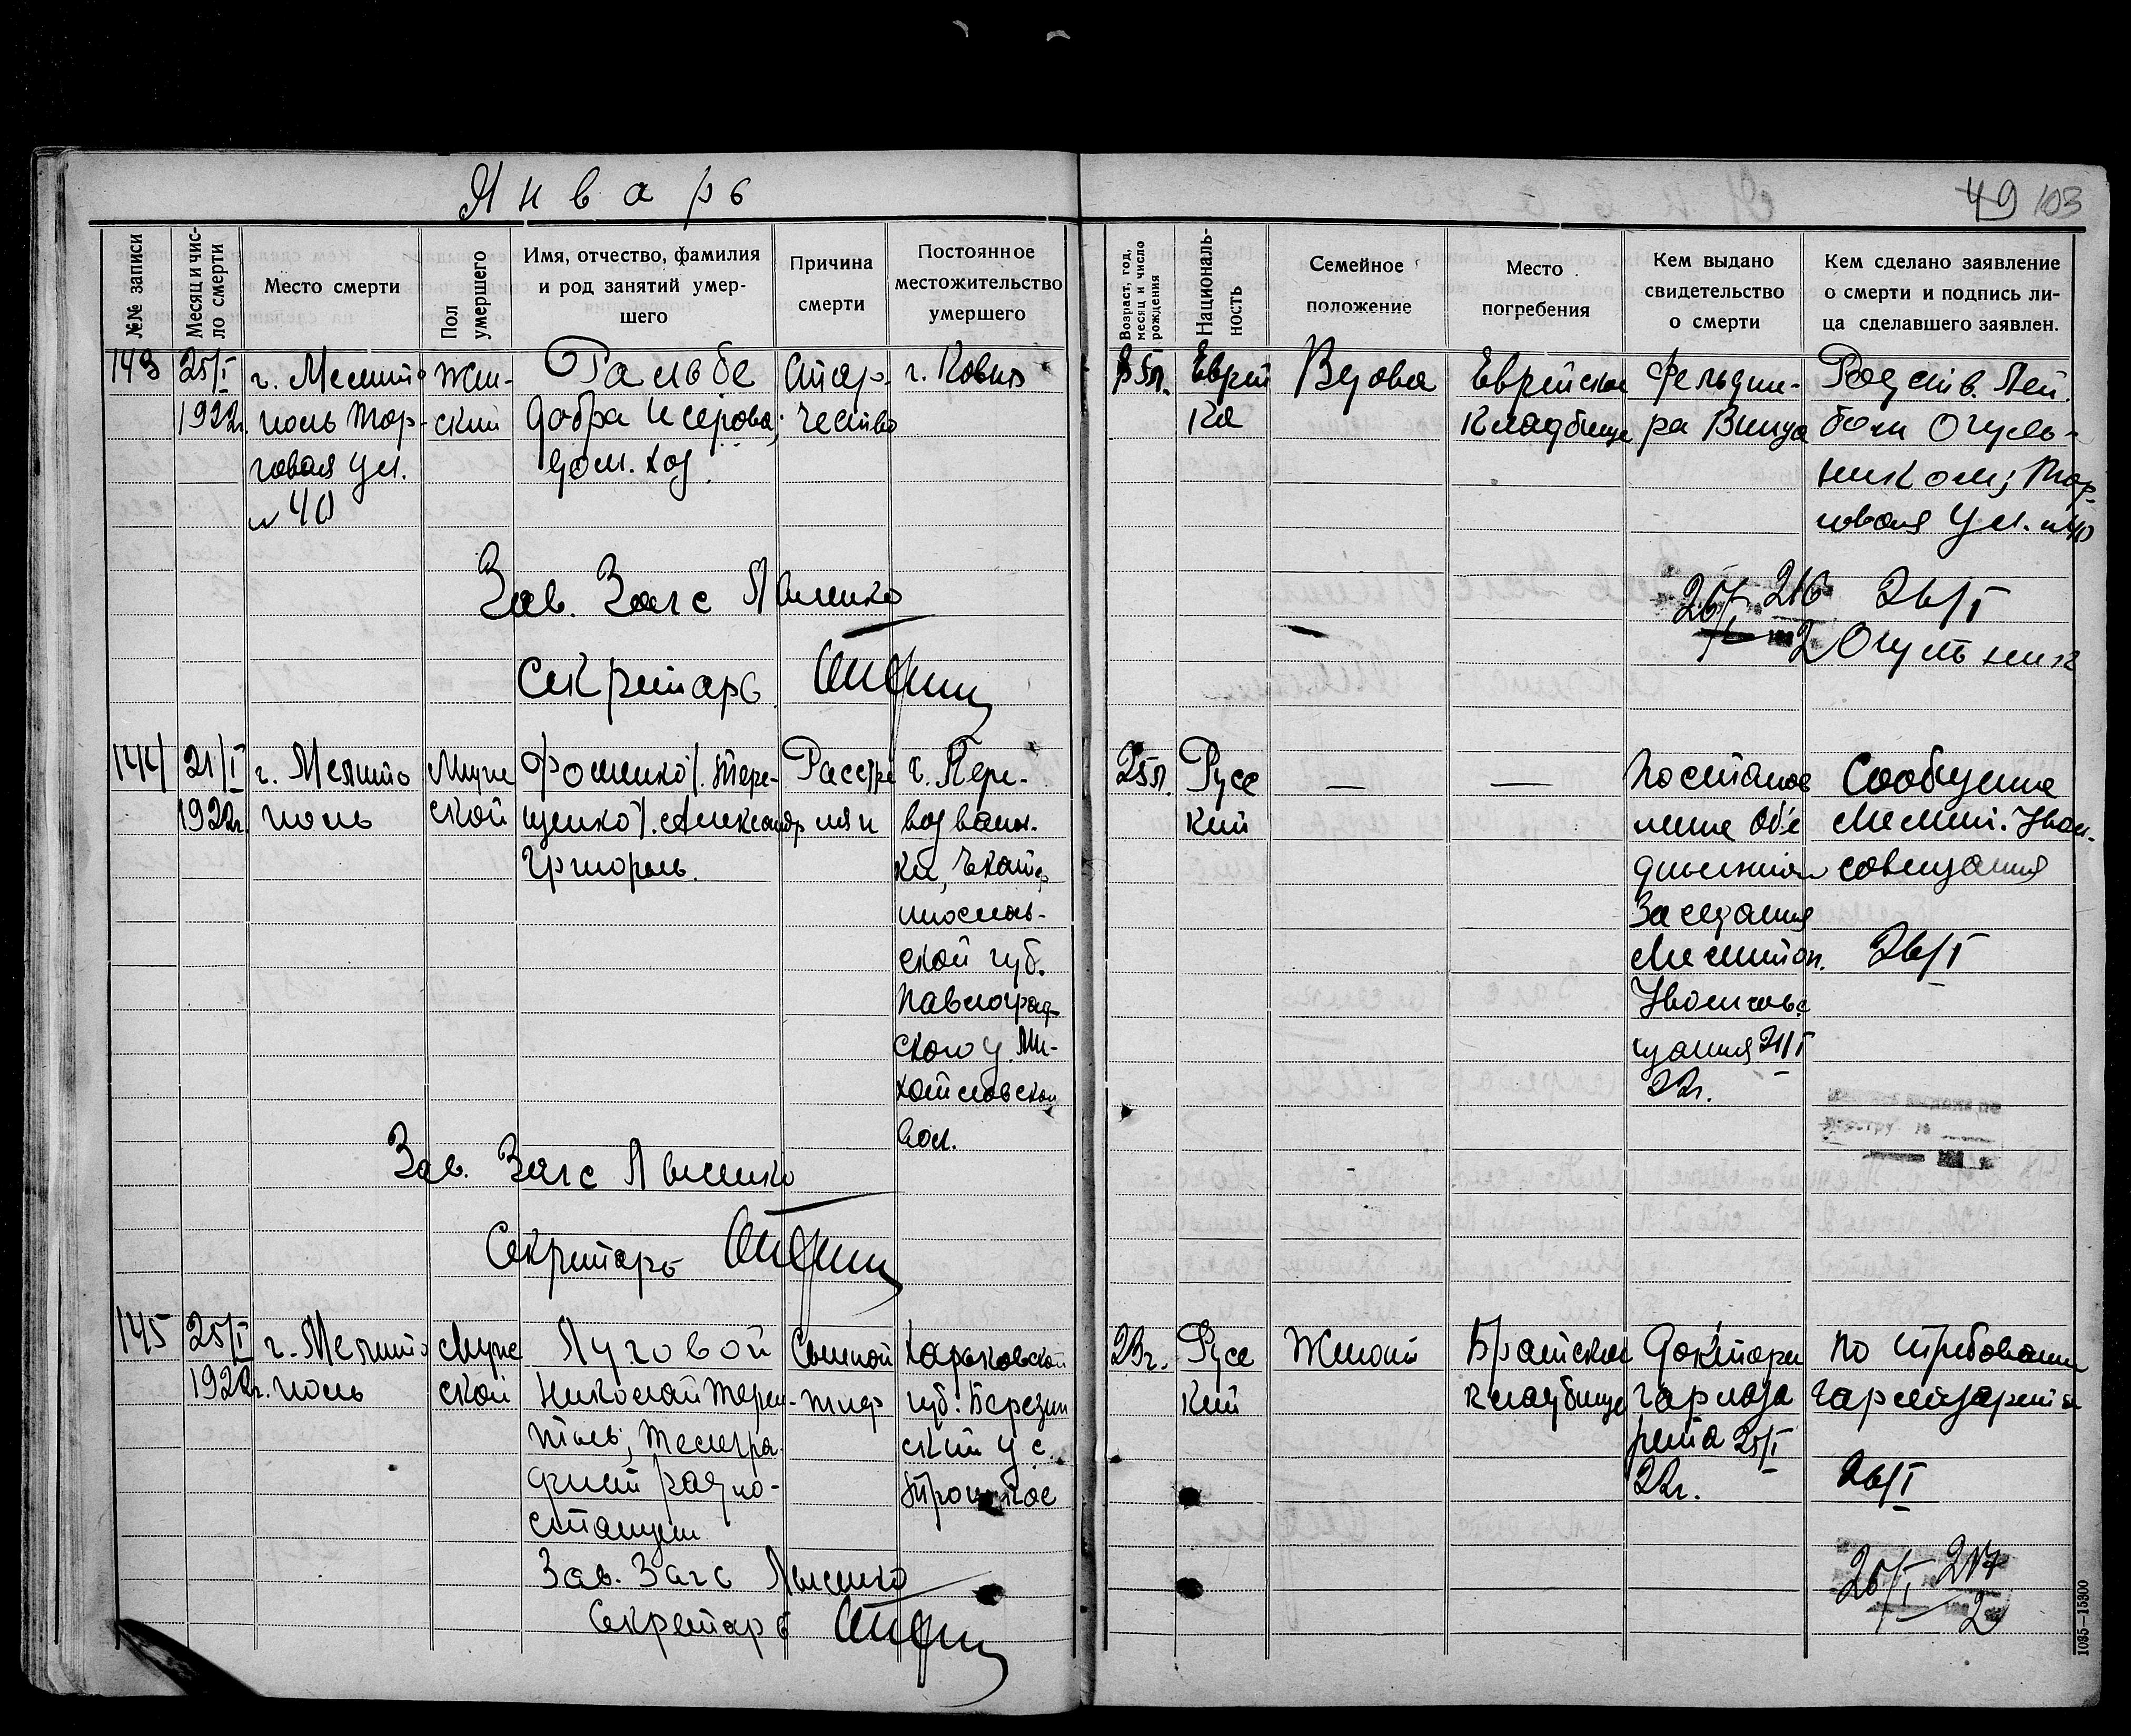 Январь
49 103
№№ записи
Месяц и чис-
ло смерти
Место смерти
Пол
умершего
Имя, отчество, фамилия
и род занятий умер-
шего
Причина
смерти
Постоянное
местожительство
умершего
Возраст, год,
месяц и число
рождения
Националь-
ность
Семейное
положение
Место
погребения
Кем выдано
свидетельство
о смерти
Кем сделано заявление
о смерти и подпись ли-
ца сделавшего заявлен.
143
25/I
1922г.
г. Мелито
поль Тор-
говая ул.
№ 40
Жен-
ский
Гальбе
Добра
дом. хоз.
Стар-
чество
г. Ковно
85л.
Еврей
ка
Вдова
Еврейское
кладбище
Фельдше-
ра Винда
Родств. Лей-
бом Огуль-
ником; Тор-
говая ул. №40
Зав. Загс Лысенко
Секретарь
26/I 216
2
26/I
Огульник
144
21/I
1922г.
г. Мелито
поль
Муже
ской
Фоменко /. Тере-
щенко /. Александр
Григорьев.
Расстре
лян
с. Пере-
ка, Екатер
инослав-
ской губ.
Павлоград-
ского у. Ми-
вол.
25л.
Русс
кий
—
—
Постанов
ление Объе
диненного
Заседания
Мелитоп.
щания 21/I
22г.
Сообщение
Мелит.
совещания
26/I
Зав. Загс Лысенко
Секретарь
145
25/I
1922г.
г. Мелито
поль
Муже
ской
Луговой
Николай Терен-
тьев; Телегра-
фист радио-
станции
Сыпной
тиф
Харьковской
губ.
23г.
Русс
кий
Женат
Братское
кладбище
Доктора
гарлаза
рета 25/I
22г.
по требованию
гарлазарета
26/I
26/I 217
2
Зав. Загс Лысенко
Секретарь
1085—15800